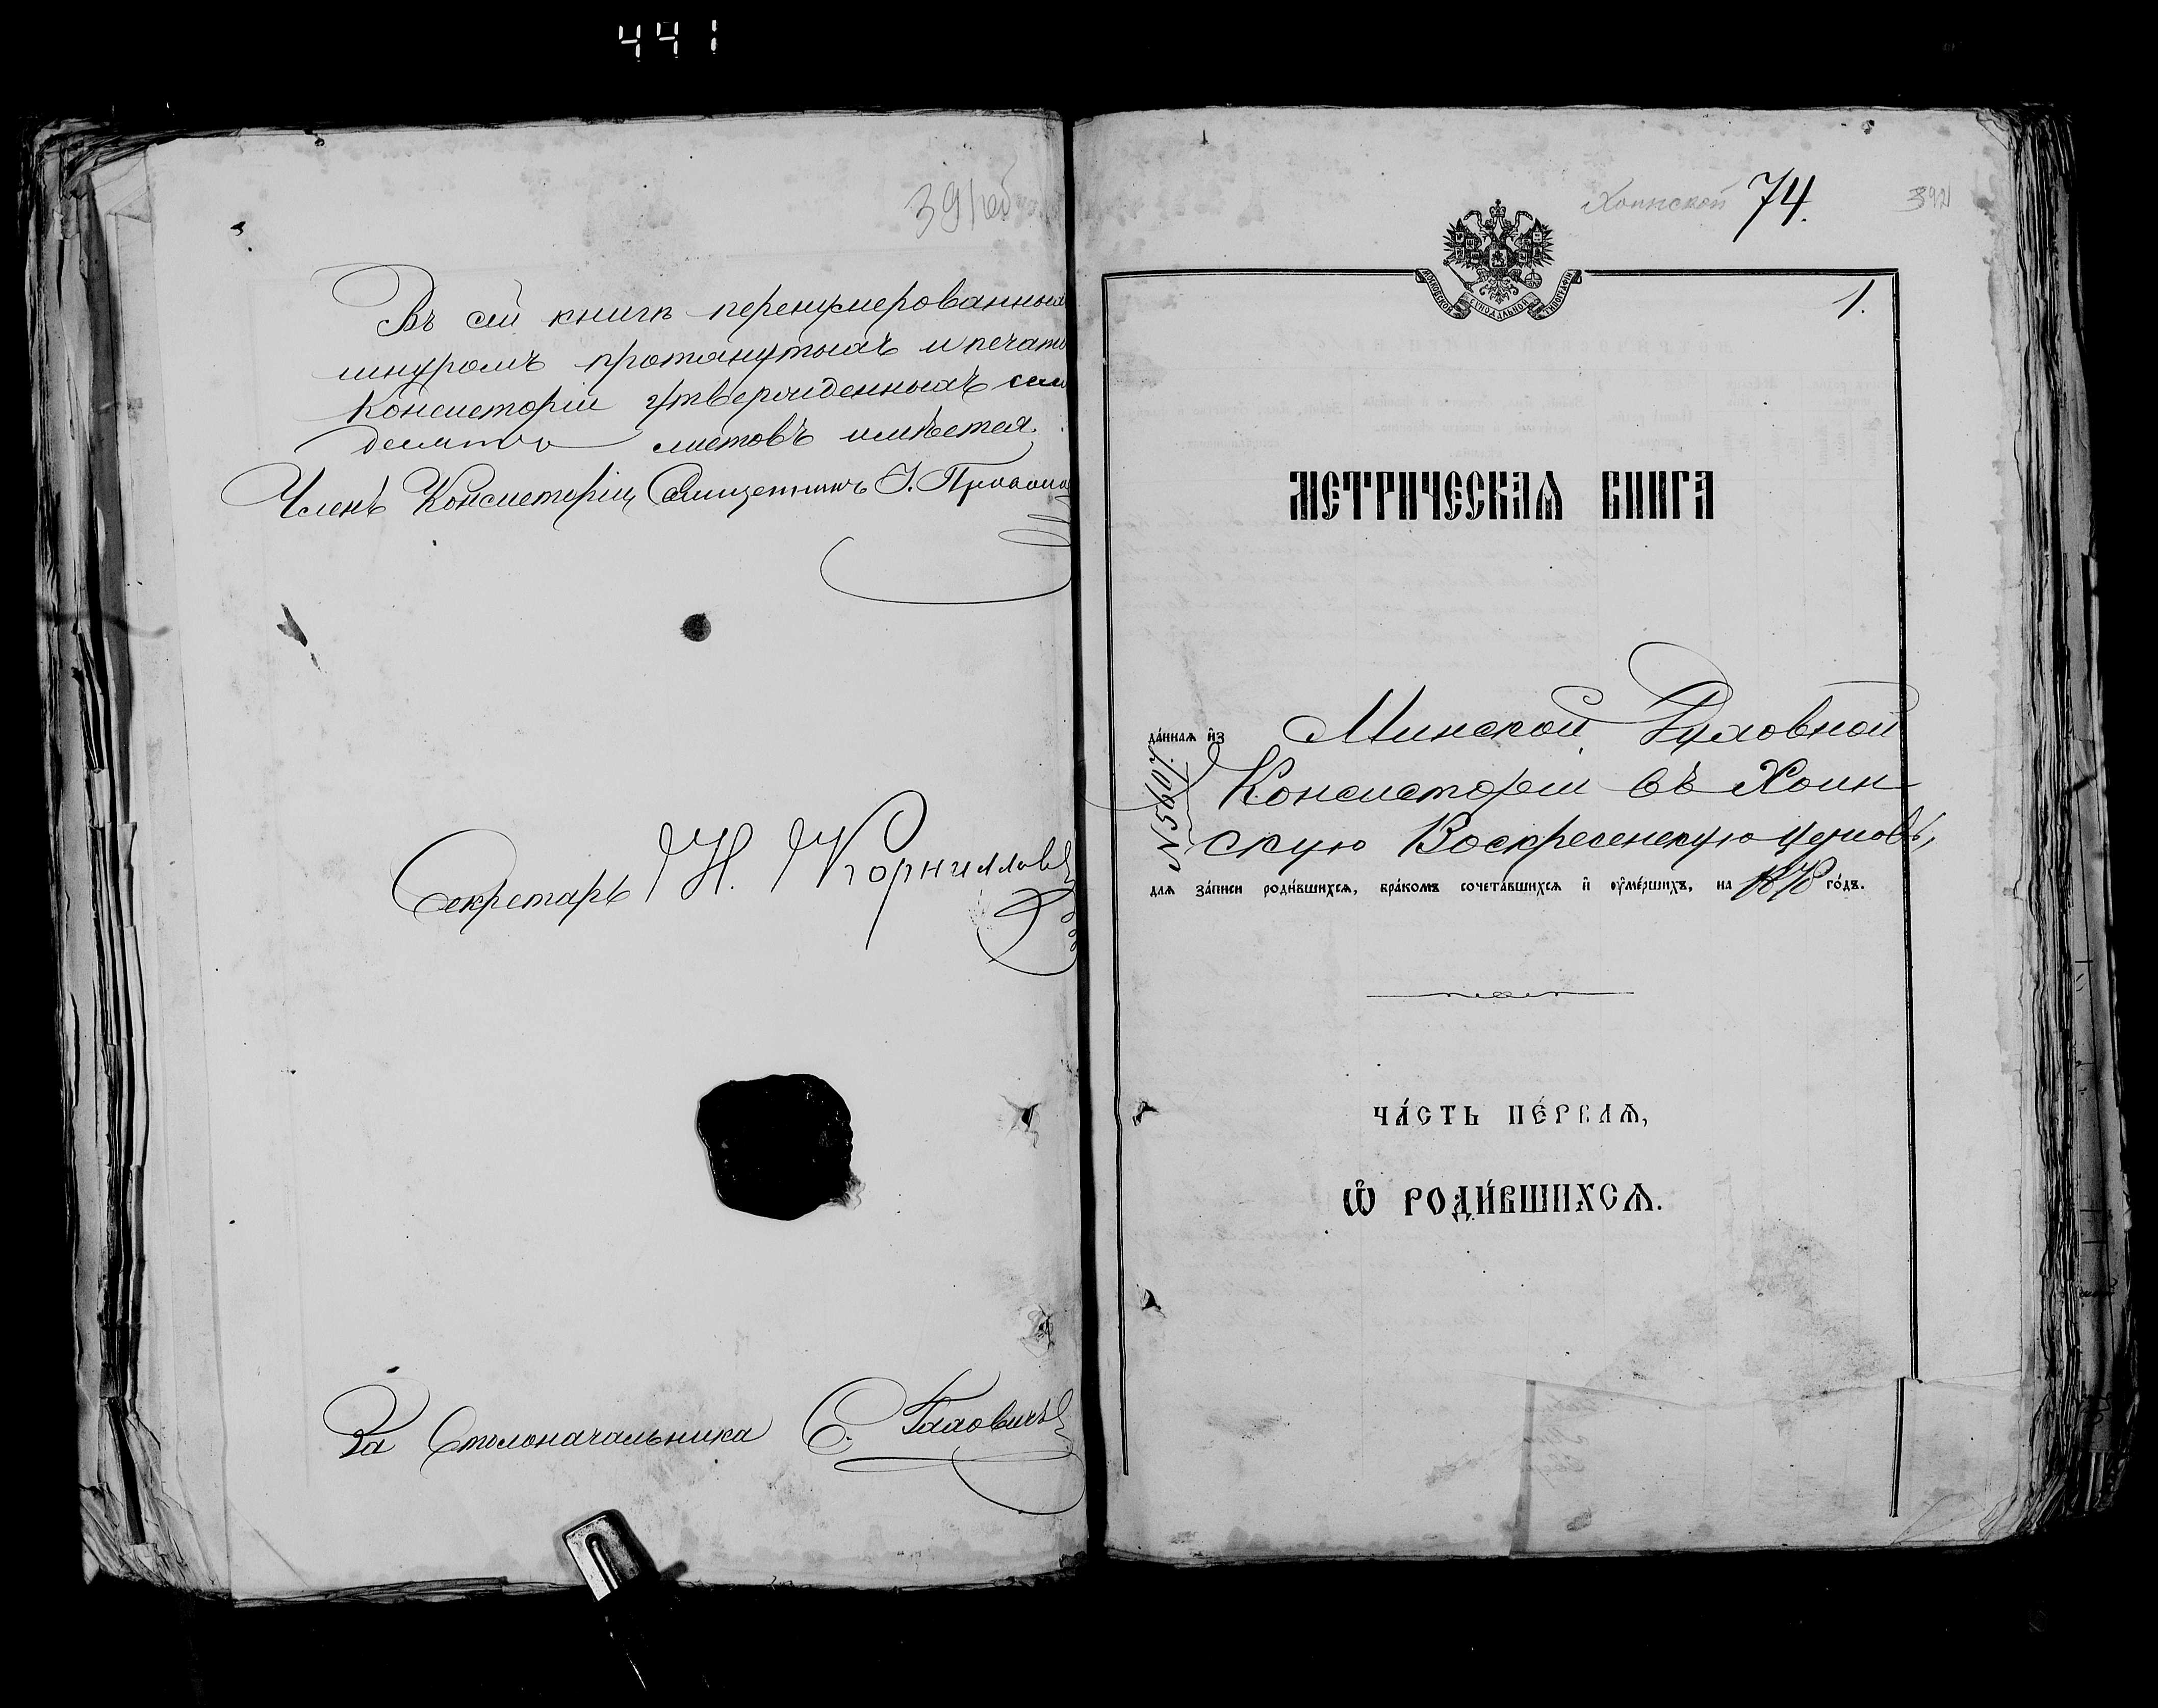 441
391 об
Въ сей книгѣ перенумерованныхъ
шнуромъ протянутыхъ и печатью
Консисторіи утвержденныхъ семь
десять листовъ имѣется.
Членъ Консисторіи, Священникъ І.
Секретарь Н. Корниллов
За Столоначальника С.
Хоинской 74. 392
МОСКОВСКОЙ СѴНОДАЛЬНОЙ ТИПОГРАФІИ
1.
МЕТРИЧЕСКАѦ КНИГА
да́ннаѧ и҆з Минской Духовной
N 5607.
Консисторіи въ Хоин-
скую Воскресенскую церковь,
длѧ за́писи роди́вшихсѧ, бра́комъ сочета́вшихсѧ и҆ ѹ҆ме́ршихъ, на 1878 го́дъ.
ЧА́СТЬ ПЕ́РВАѦ,
Ѽ РОДИ́ВШИХСѦ.